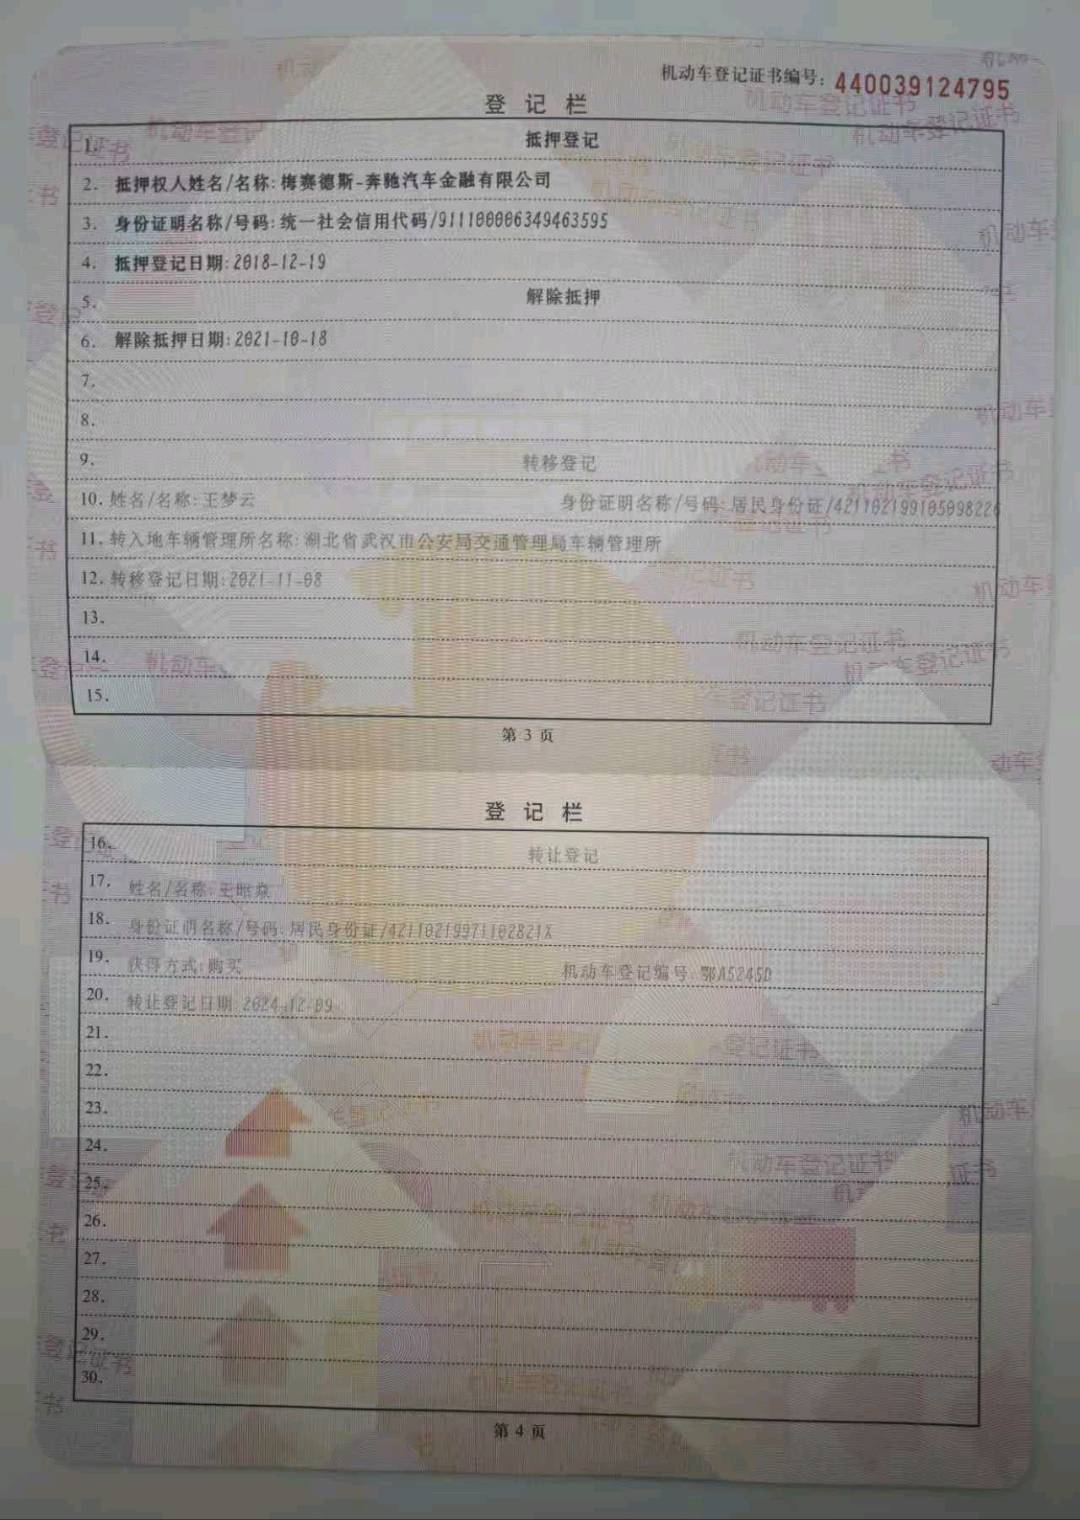 机动车登记证书编号：440039124795
登 记 栏
1. 抵押登记
2. 抵押权人姓名/名称:梅赛德斯-奔驰汽车金融有限公司
3. 身份证明名称/号码:统一社会信用代码/911100006349463595
4. 抵押登记日期:2018-12-19
5. 解除抵押
6. 解除抵押日期:2021-10-18
7.
8.
9. 转移登记
10. 姓名/名称:王梦云 身份证明名称/号码:居民身份证/421102199105098226
11. 转入地车辆管理所名称:湖北省武汉市公安局交通管理局车辆管理所
12. 转移登记日期:2021-11-08
13.
14.
15.
第 3 页
登 记 栏
16. 转让登记
17. 姓名/名称:王昭焱
18. 身份证明名称/号码:居民身份证/42110219971102821X
19. 获得方式:购买 机动车登记编号:鄂A5245D
20. 转让登记日期:2024-12-09
21.
22.
23.
24.
25.
26.
27.
28.
29.
30.
第 4 页